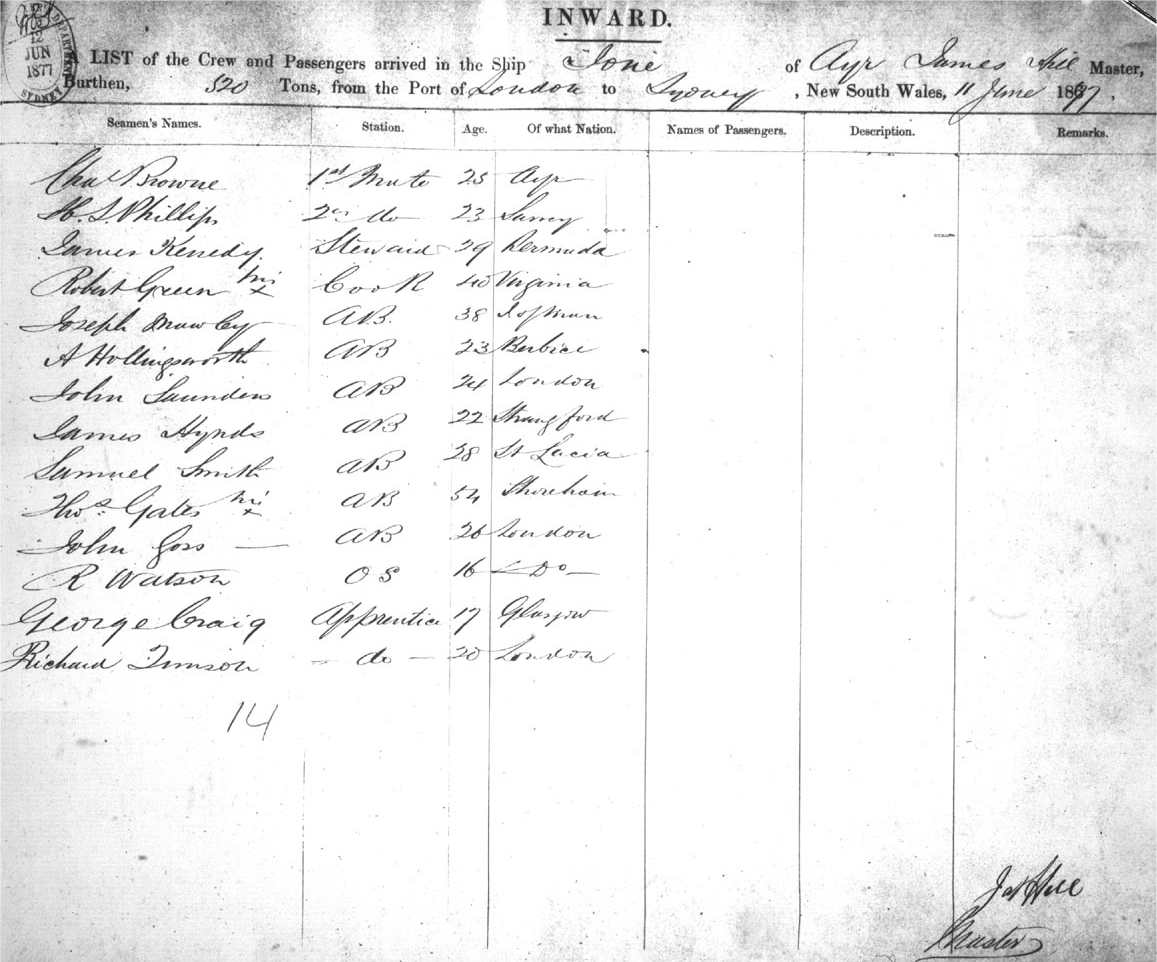 12
JUN
1877
SYDNEY
INWARD.
A LIST of the Crew and Passengers arrived in the Ship Ione of Ayr James Hill Master,
Burthen, 520 Tons, from the Port of London to Sydney, New South Wales, 11 June 1877.
Seamen's Names. Station. Age. Of what Nation. Names of Passengers. Description. Remarks.
Chas Browne 1st Mate 25 Ayr
H. S. Phillips 2nd do 23 Surrey
James Kenedy. Steward 29 Bermuda
Robert Green his x Cook 40 Virginia
Joseph Mawby AB. 38 I of Man
A Hollingsworth AB 23 Berbice
John Saunders AB 24 London
James Hynds AB 22 Strangford
Samuel Smith AB 28 St Lucia
Thos. Gates his x AB 54 Shoreham
John Goss — AB 26 London
R Watson OS 16 — Do —
George Craig Apprentice 17 Glasgow
Richard Timson — do — 20 London
14
Jas Hill
Master